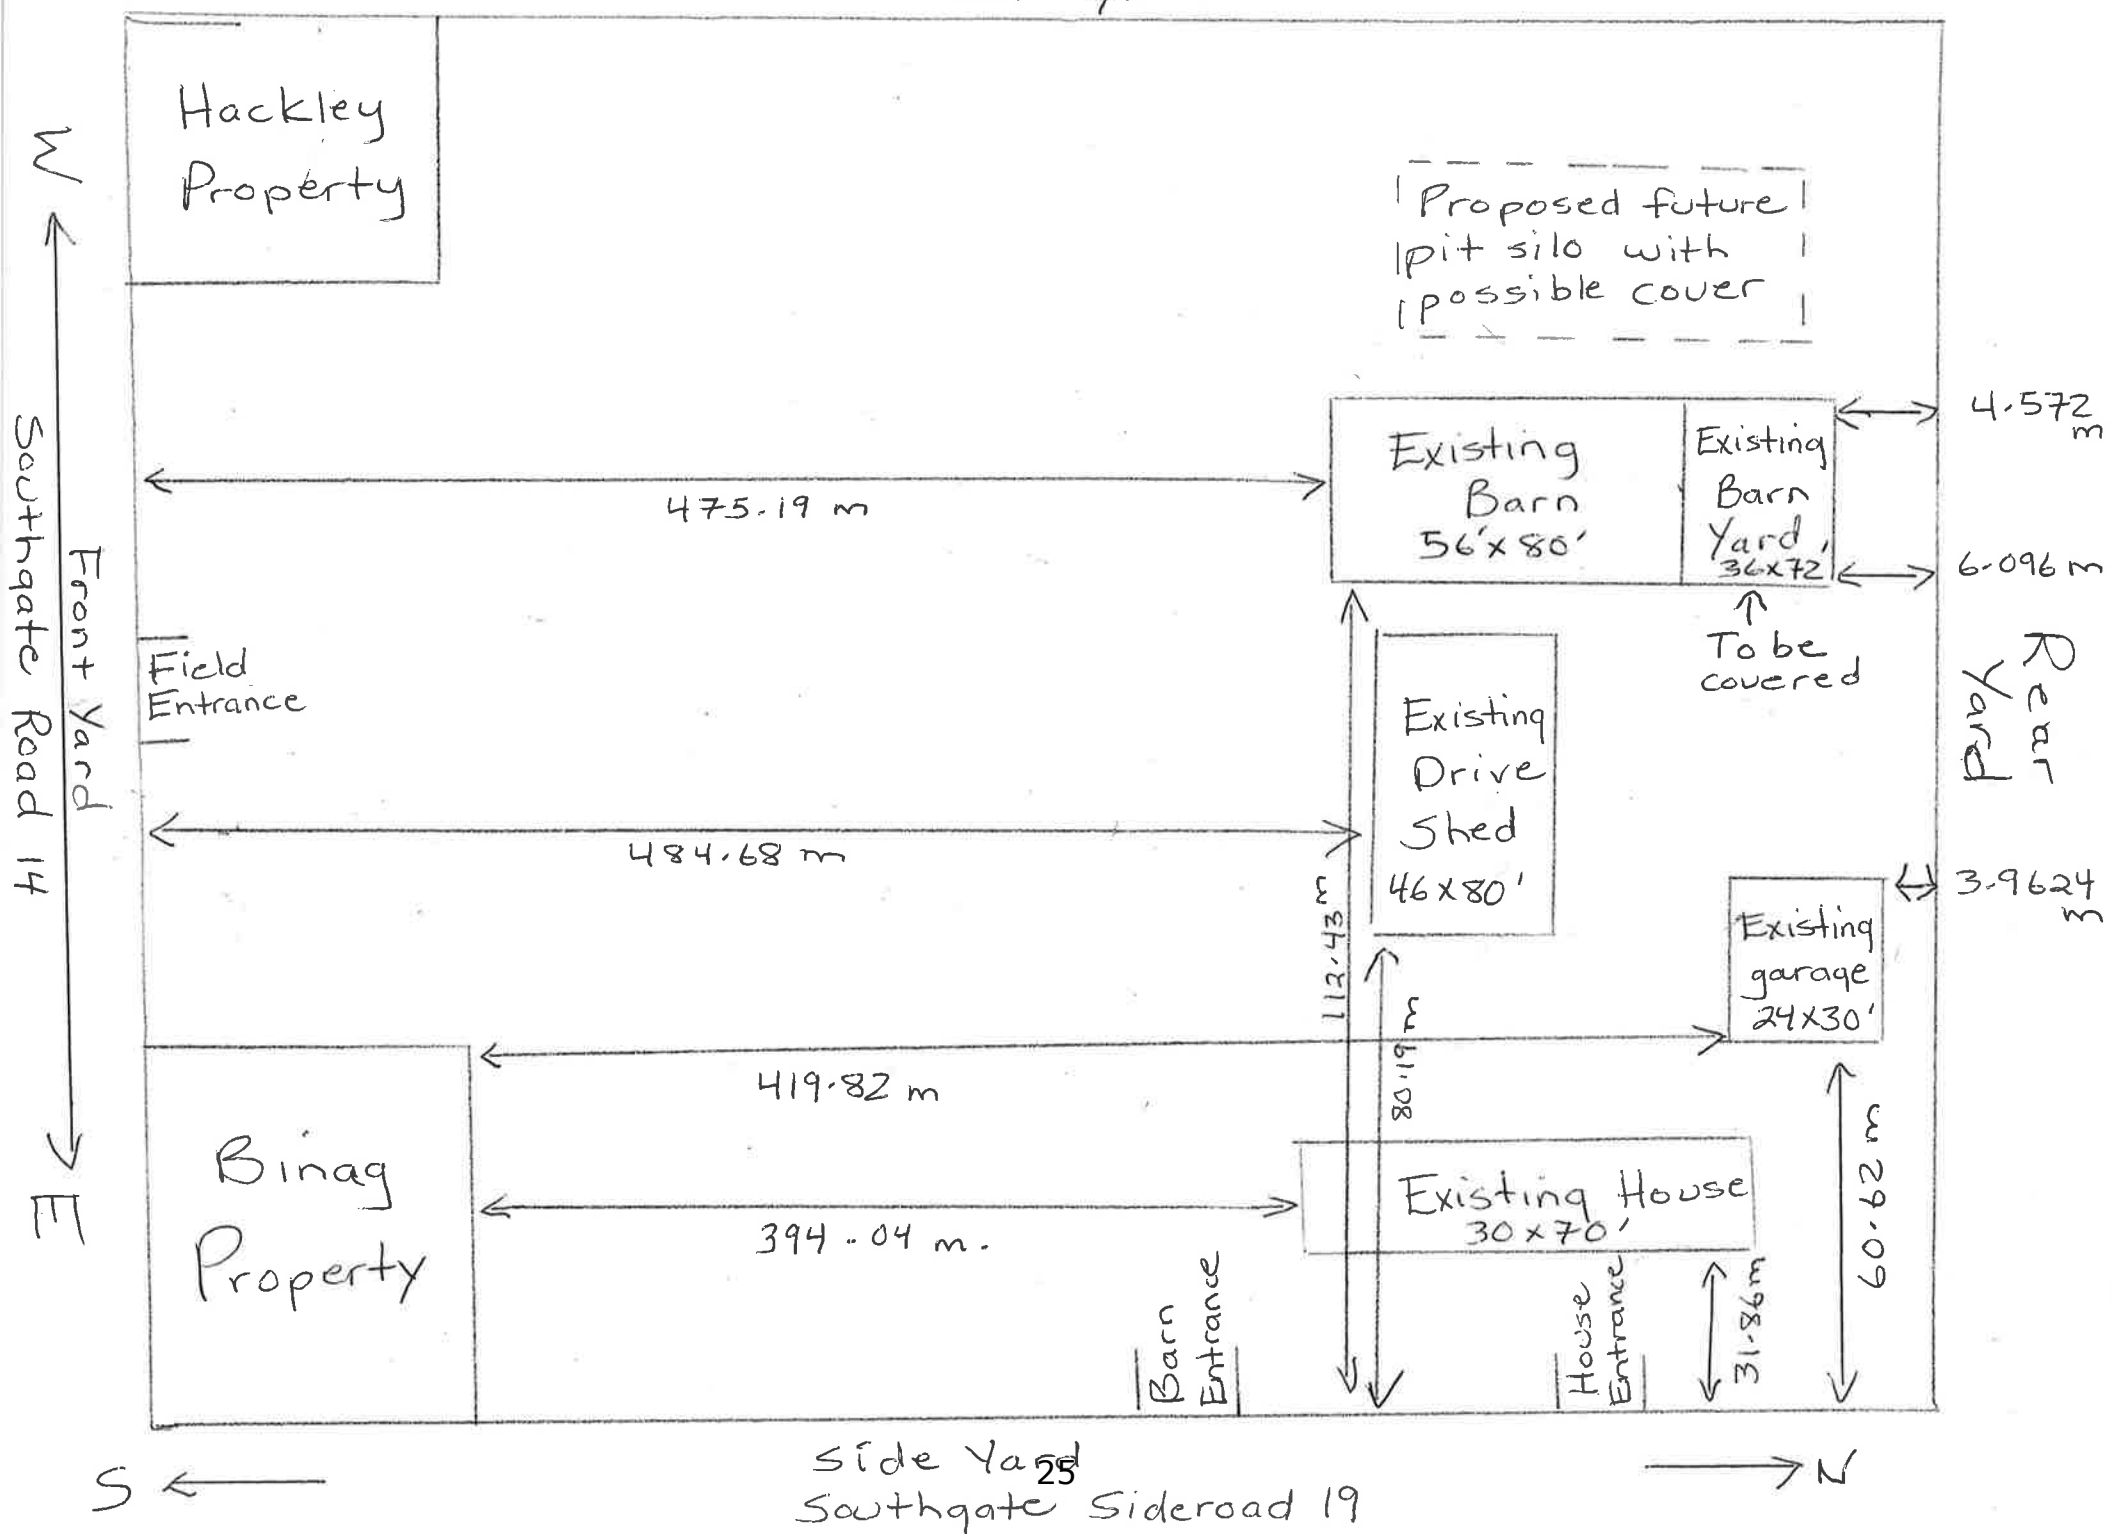 Hackley
Property
W
Southgate Road 14
Front Yard
E
Proposed future
pit silo with
possible cover
4.572
m
Existing
Barn
56'x80'
Existing
Barn
Yard
36x72'
475.19 m
6.096 m
To be
covered
Rear
Yard
Field
Entrance
Existing
Drive
Shed
46x80'
484.68 m
112.43 m
3.9624
m
Existing
garage
24x30'
80.19 m
419.82 m
Binag
Property
Existing House
30x70'
394.04 m.
Barn
Entrance
House
Entrance
31.86 m
S
N
Side Yard
25
Southgate Sideroad 19